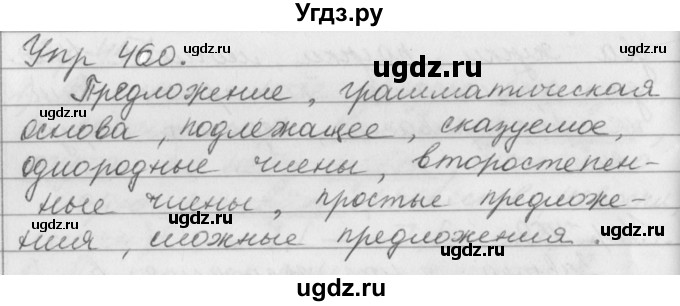 Угдз.ру
Упр 460.
Предложение, грамматическая
основа, подлежащее, сказуемое,
однородные члены, второстепен-
ные члены, простые предложе-
ния, сложные предложения.
ugdz.ru
ugdz.ru
ugdz.ru
ugdz.ru
ugdz.ru
ugdz.ru
ugdz.ru
ugdz.ru
ugdz.ru
ugdz.ru
ugdz.ru